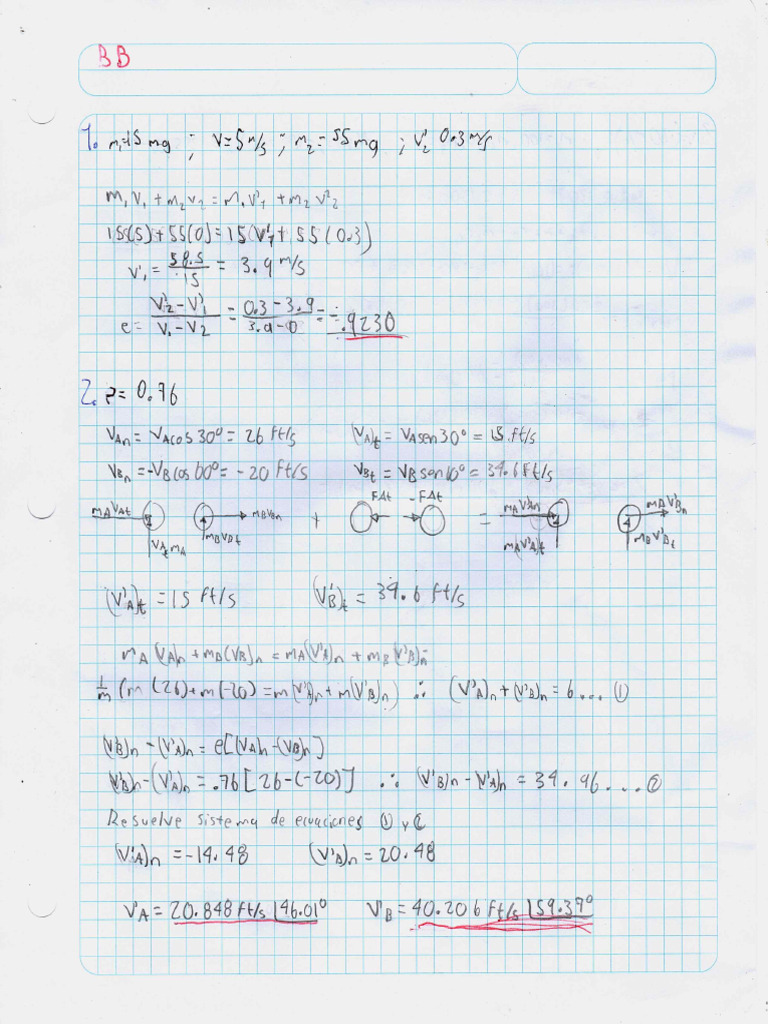 BB
1. m₁=15 mg ; V=5 m/s ; m₂=55mg ; V'₂ 0.3 m/s
m₁V₁ + m₂V₂ = m₁V'₁ + m₂V'₂
15(5)+55(0)=15(V'₁+55(0.3)
V'₁ = 58.5/15 = 3.9 m/s
e = V'₂-V'₁/V₁-V₂ = 0.3-3.9/3.9-0 = -.9230
2. e= 0.76
VAn = VAcos30° = 26 ft/s (VA)t = VAsen30° = 15.ft/s
VBn = -VBcos60° = -20 ft/s VBt = VBsen60° = 34.6 ft/s
FΔt -FΔt
mAVAt mBVBn mAV'A)n mBV'B)n
VAt mA mBVBt mAV'A)t mBV'Bt
+ =
(V'A)t = 15 ft/s (V'B)t = 34.6 ft/s
mA(VA)n + mB(VB)n = mA(V'A)n + mB(V'B)n
1/m (m(26)+m(-20)=m(V'A)n+m(V'B)n) ∴ (V'A)n+(V'B)n = 6... ①
(V'B)n-(V'A)n = e[(VA)n-(VB)n]
(V'B)n-(V'A)n = .76[26-(-20)] ∴ (V'B)n-(V'A)n = 34.96...②
Resuelve sistema de ecuaciones ① y ②
(V'A)n = -14.48 (V'A)n = 20.48
V'A = 20.848 ft/s |46.01° V'B = 40.206 ft/s |59.37°